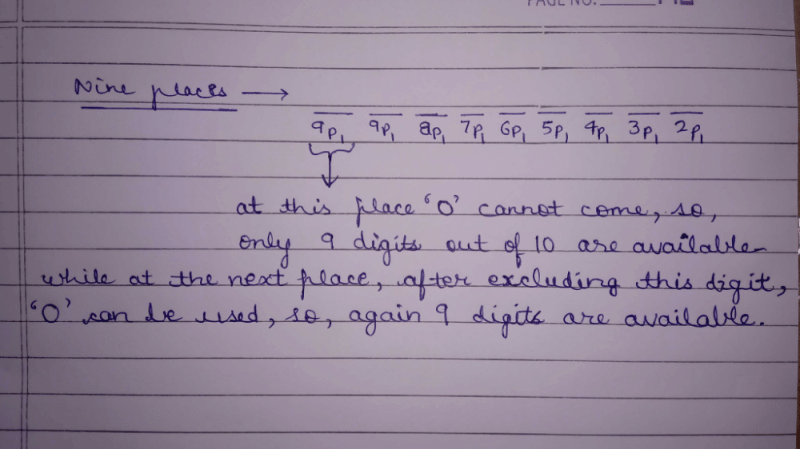 PAGE NO.
Nine places →
9P₁ 9P₁ 8P₁ 7P₁ 6P₁ 5P₁ 4P₁ 3P₁ 2P₁
at this place ‘0’ cannot come, so,
only 9 digits out of 10 are available
while at the next place, after excluding this digit,
‘0’ can be used, so, again 9 digits are available.